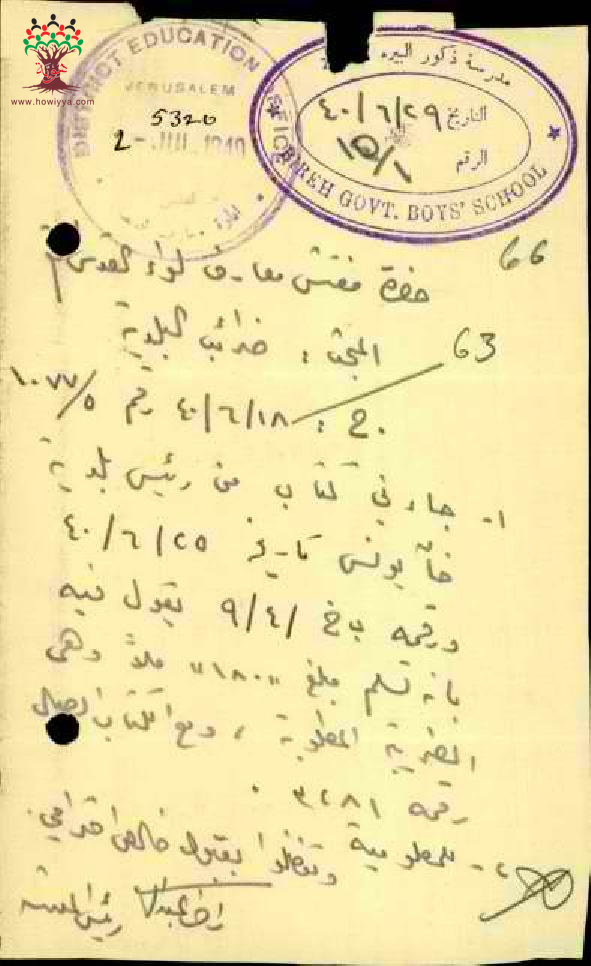 www.howiyya.com
DISTRICT EDUCATION OFFICE
JERUSALEM
5320
2 - JUL 1940
مدرسة ذكور البيره
التاريخ ٤٠/٦/٢٩
الرقم ١٥/١
BIREH GOVT. BOYS' SCHOOL
66
حضرة مفتش معارف لواء القدس
63
المبحث : ضرائب البلدية
ج : ٤٠/٦/١٨ رقم ١٠٧٧/٥
١- جاءني كتاب من رئيس بلدية
خان يونس تاريخ ٤٠/٦/٢٥
ورقمه ب خ /٩/٤ يقول فيه
بأنه تسلم مبلغ "١٨٠" ملاً وهي
الضريبة المطلوبة ، ومع الكتاب ايصال
رقمه ٣٢٨١ .
٢- للمعلومية وتفضلوا بقبول خالص احترامي
رئيس المدرسة